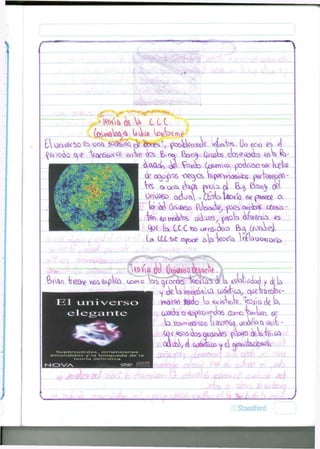 Teoría de la C.C.C
Cosmología Cíclica Conforme
El universo es una sucesión de eones, posiblemente infinitos. Un eon es el
periodo que transcurre entre dos Bing Bang. Círculos observados en la Ra-
diación del Fondo Cósmico, podrían ser huella
de agujeros negros hipermasivos pertenecien-
tes a una etapa previa al Big Bang del
Universo actual. Esta teoría se parece a
la del Universo Pulsante, pues ambos
ten modelos cíclicos, pero la diferencia es
que la CCC no
La CCC se opone a la teoría Inflacionaria.
Teoría del Universo Elegante.
Brian Greene nos explica como las grandes Teorías de la relatividad y de la
y de la mecánica cuántica, que transfor-
maron todo lo existente. Teoría de la
cuerda o supercuerdas como también se
la
las grandes pilares de la física
actual, el cuántico y el gravitacional.
El universo
elegante
Supercuerdas, dimensiones
escondidas y la búsqueda de la
teoría definitiva
NOVA
DVD
Standford